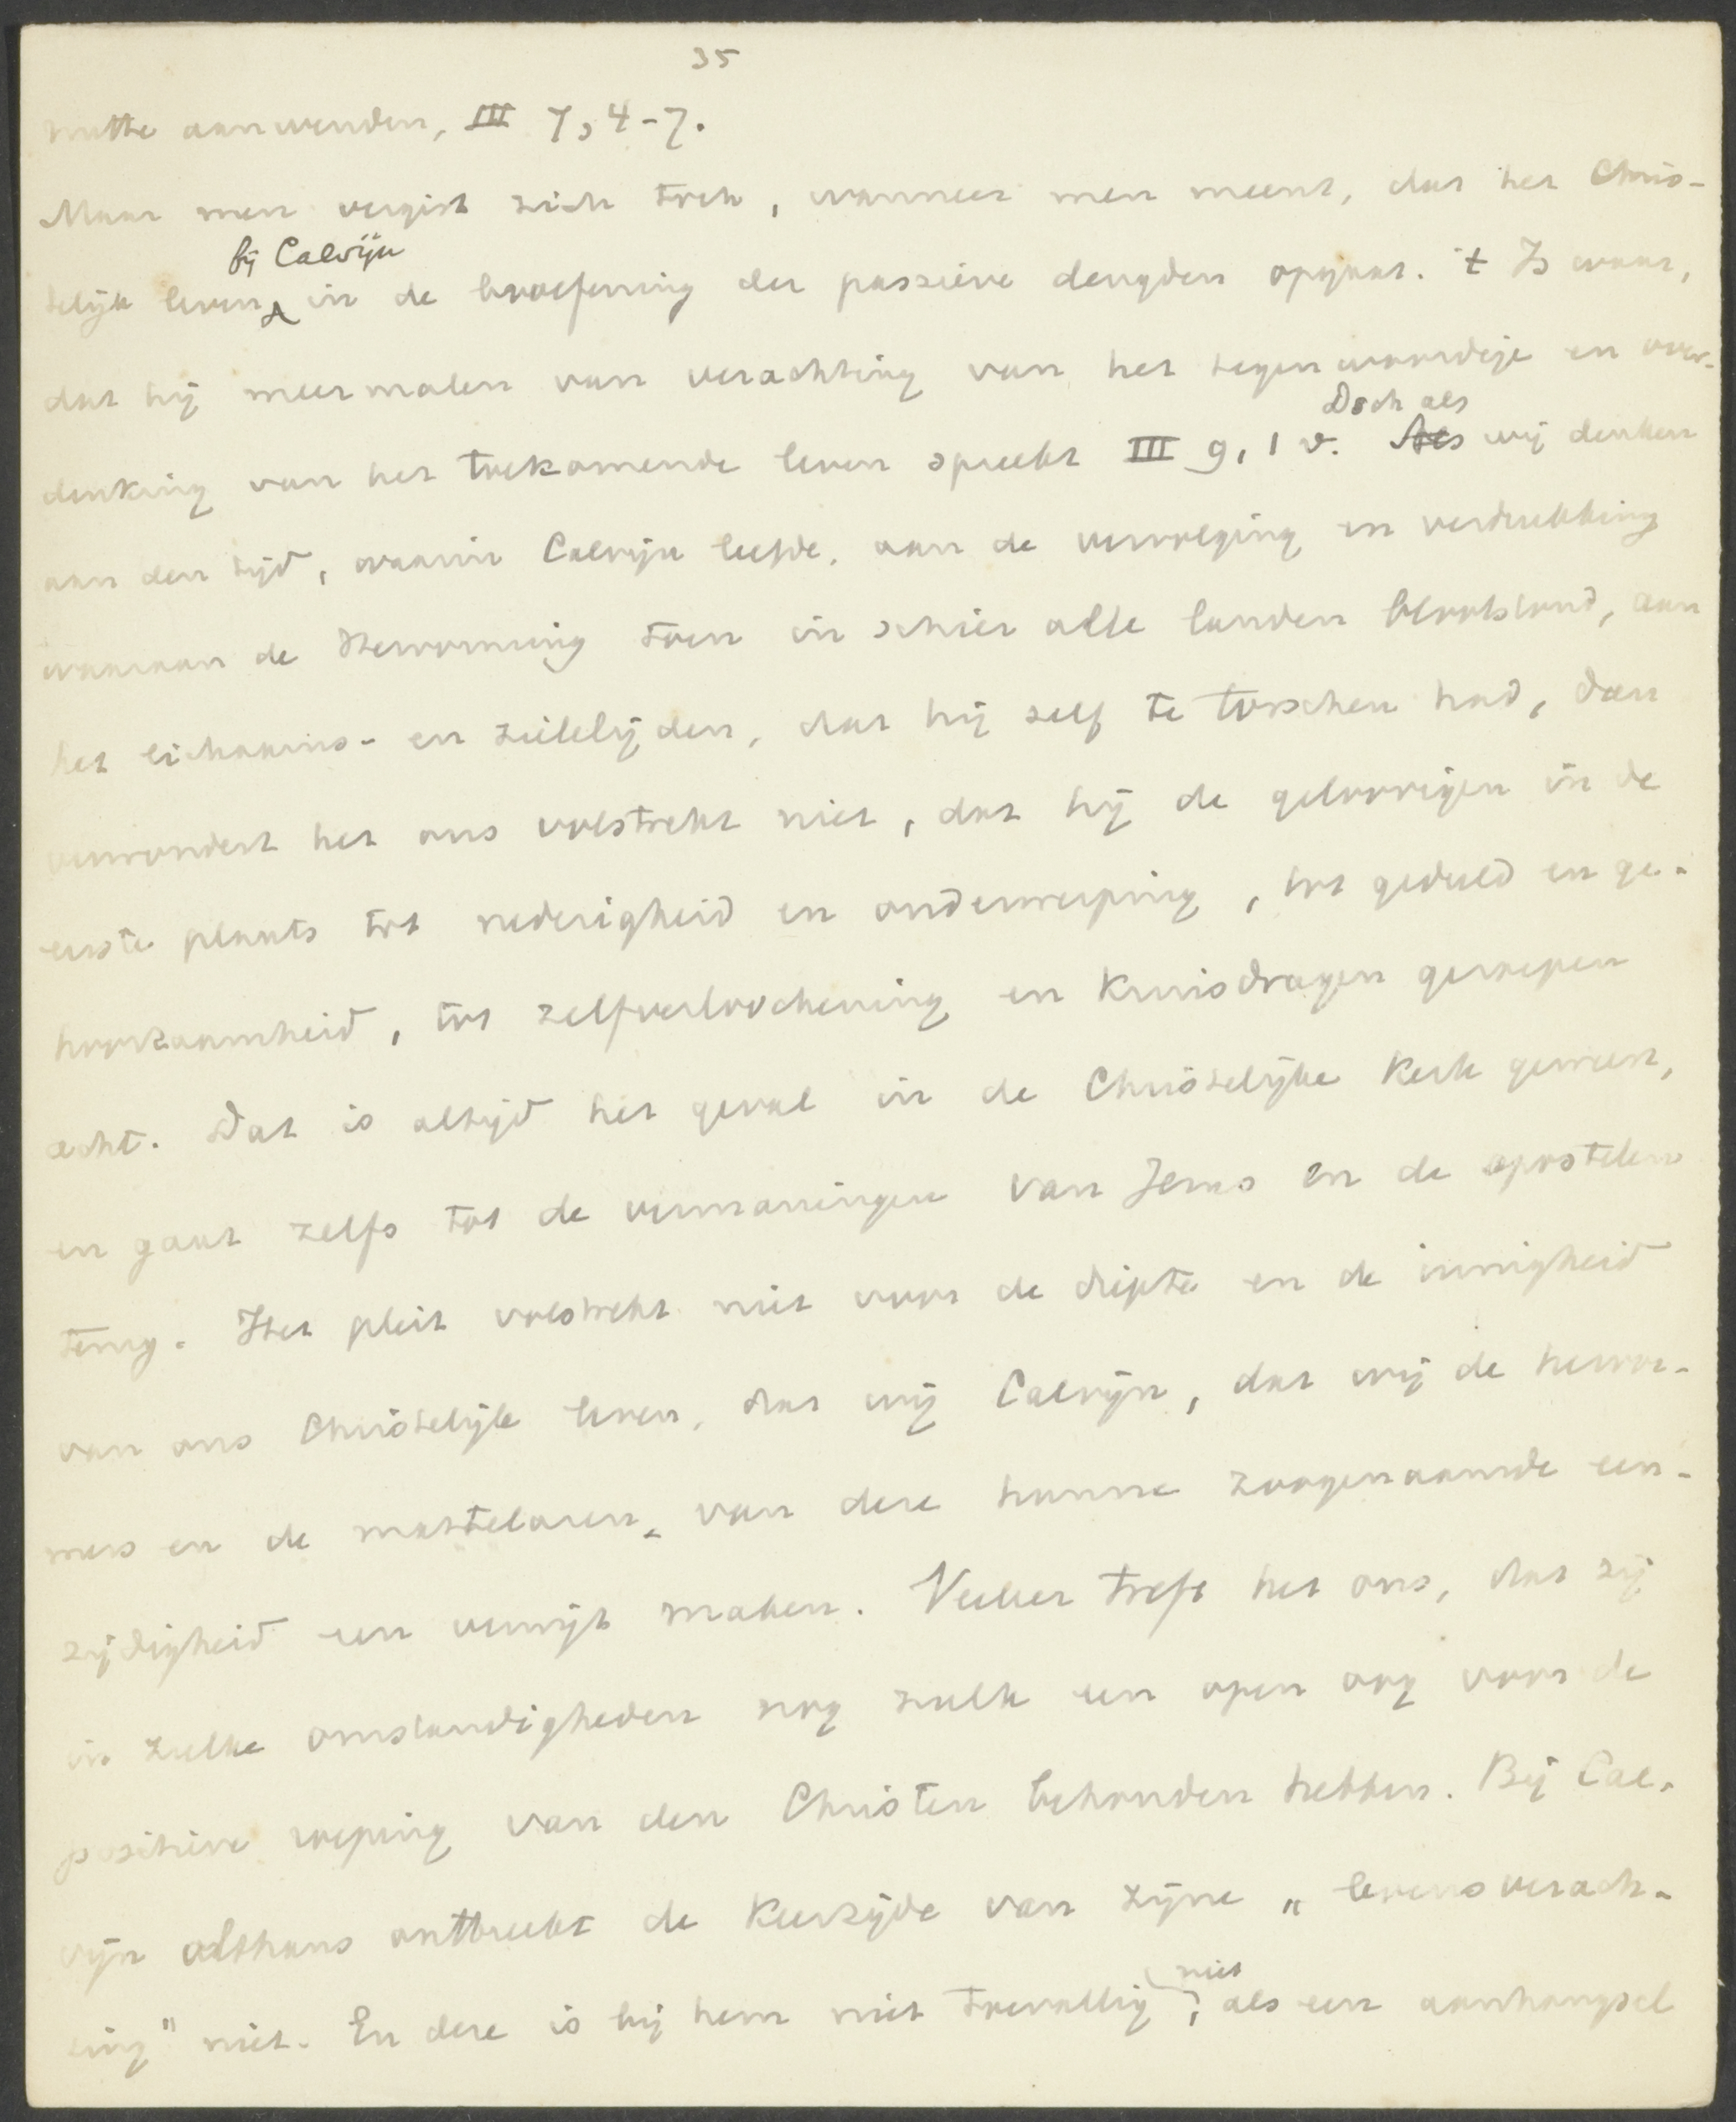 35
nutte aanwenden, III 7, 4-7.
Maar men vergist zich toch, wanneer men meent, dat het Chris-
bij Calvijn
telijk leven in de beoefening der passieve deugden opgaat. 't Is waar,
dat hij meermalen van verachting van het tegenwoordige en over-
Doch als
denking van het toekomende leven spreekt III 9, 1 v. Als wij denken
aan den tijd, waarin Calvijn leefde, aan de vervolging en verdrukking
waaraan de Hervorming toen in schier alle landen blootstond, aan
het lichaams- en zielelijden, dat hij zelf te torschen had, dan
verwondert het ons volstrekt niet, dat hij de geloovigen in de
eerste plaats tot nederigheid en onderwerping, tot geduld en ge-
hoorzaamheid, tot zelfverloochening en kruisdragen geroepen
acht. Dat is altijd het geval in de Christelijke kerk geweest,
en gaat zelfs tot de vermaningen van Jezus en de apostelen
terug. Het pleit volstrekt niet voor de diepte en de innigheid
van ons Christelijk leven, dat wij Calvijn, dat wij de hervor-
mers en de martelaren van deze hunne zoogenaamde een-
zijdigheid een verwijt maken. Veeleer treft het ons, dat zij
in zulke omstandigheden nog zulk een open oog voor de
positieve roeping van den Christen behouden hebben. Bij Cal-
vijn althans ontbreekt de keerzijde van zijne „levensverach-
niet
ting" niet. En deze is bij hem niet toevallig, als een aanhangsel